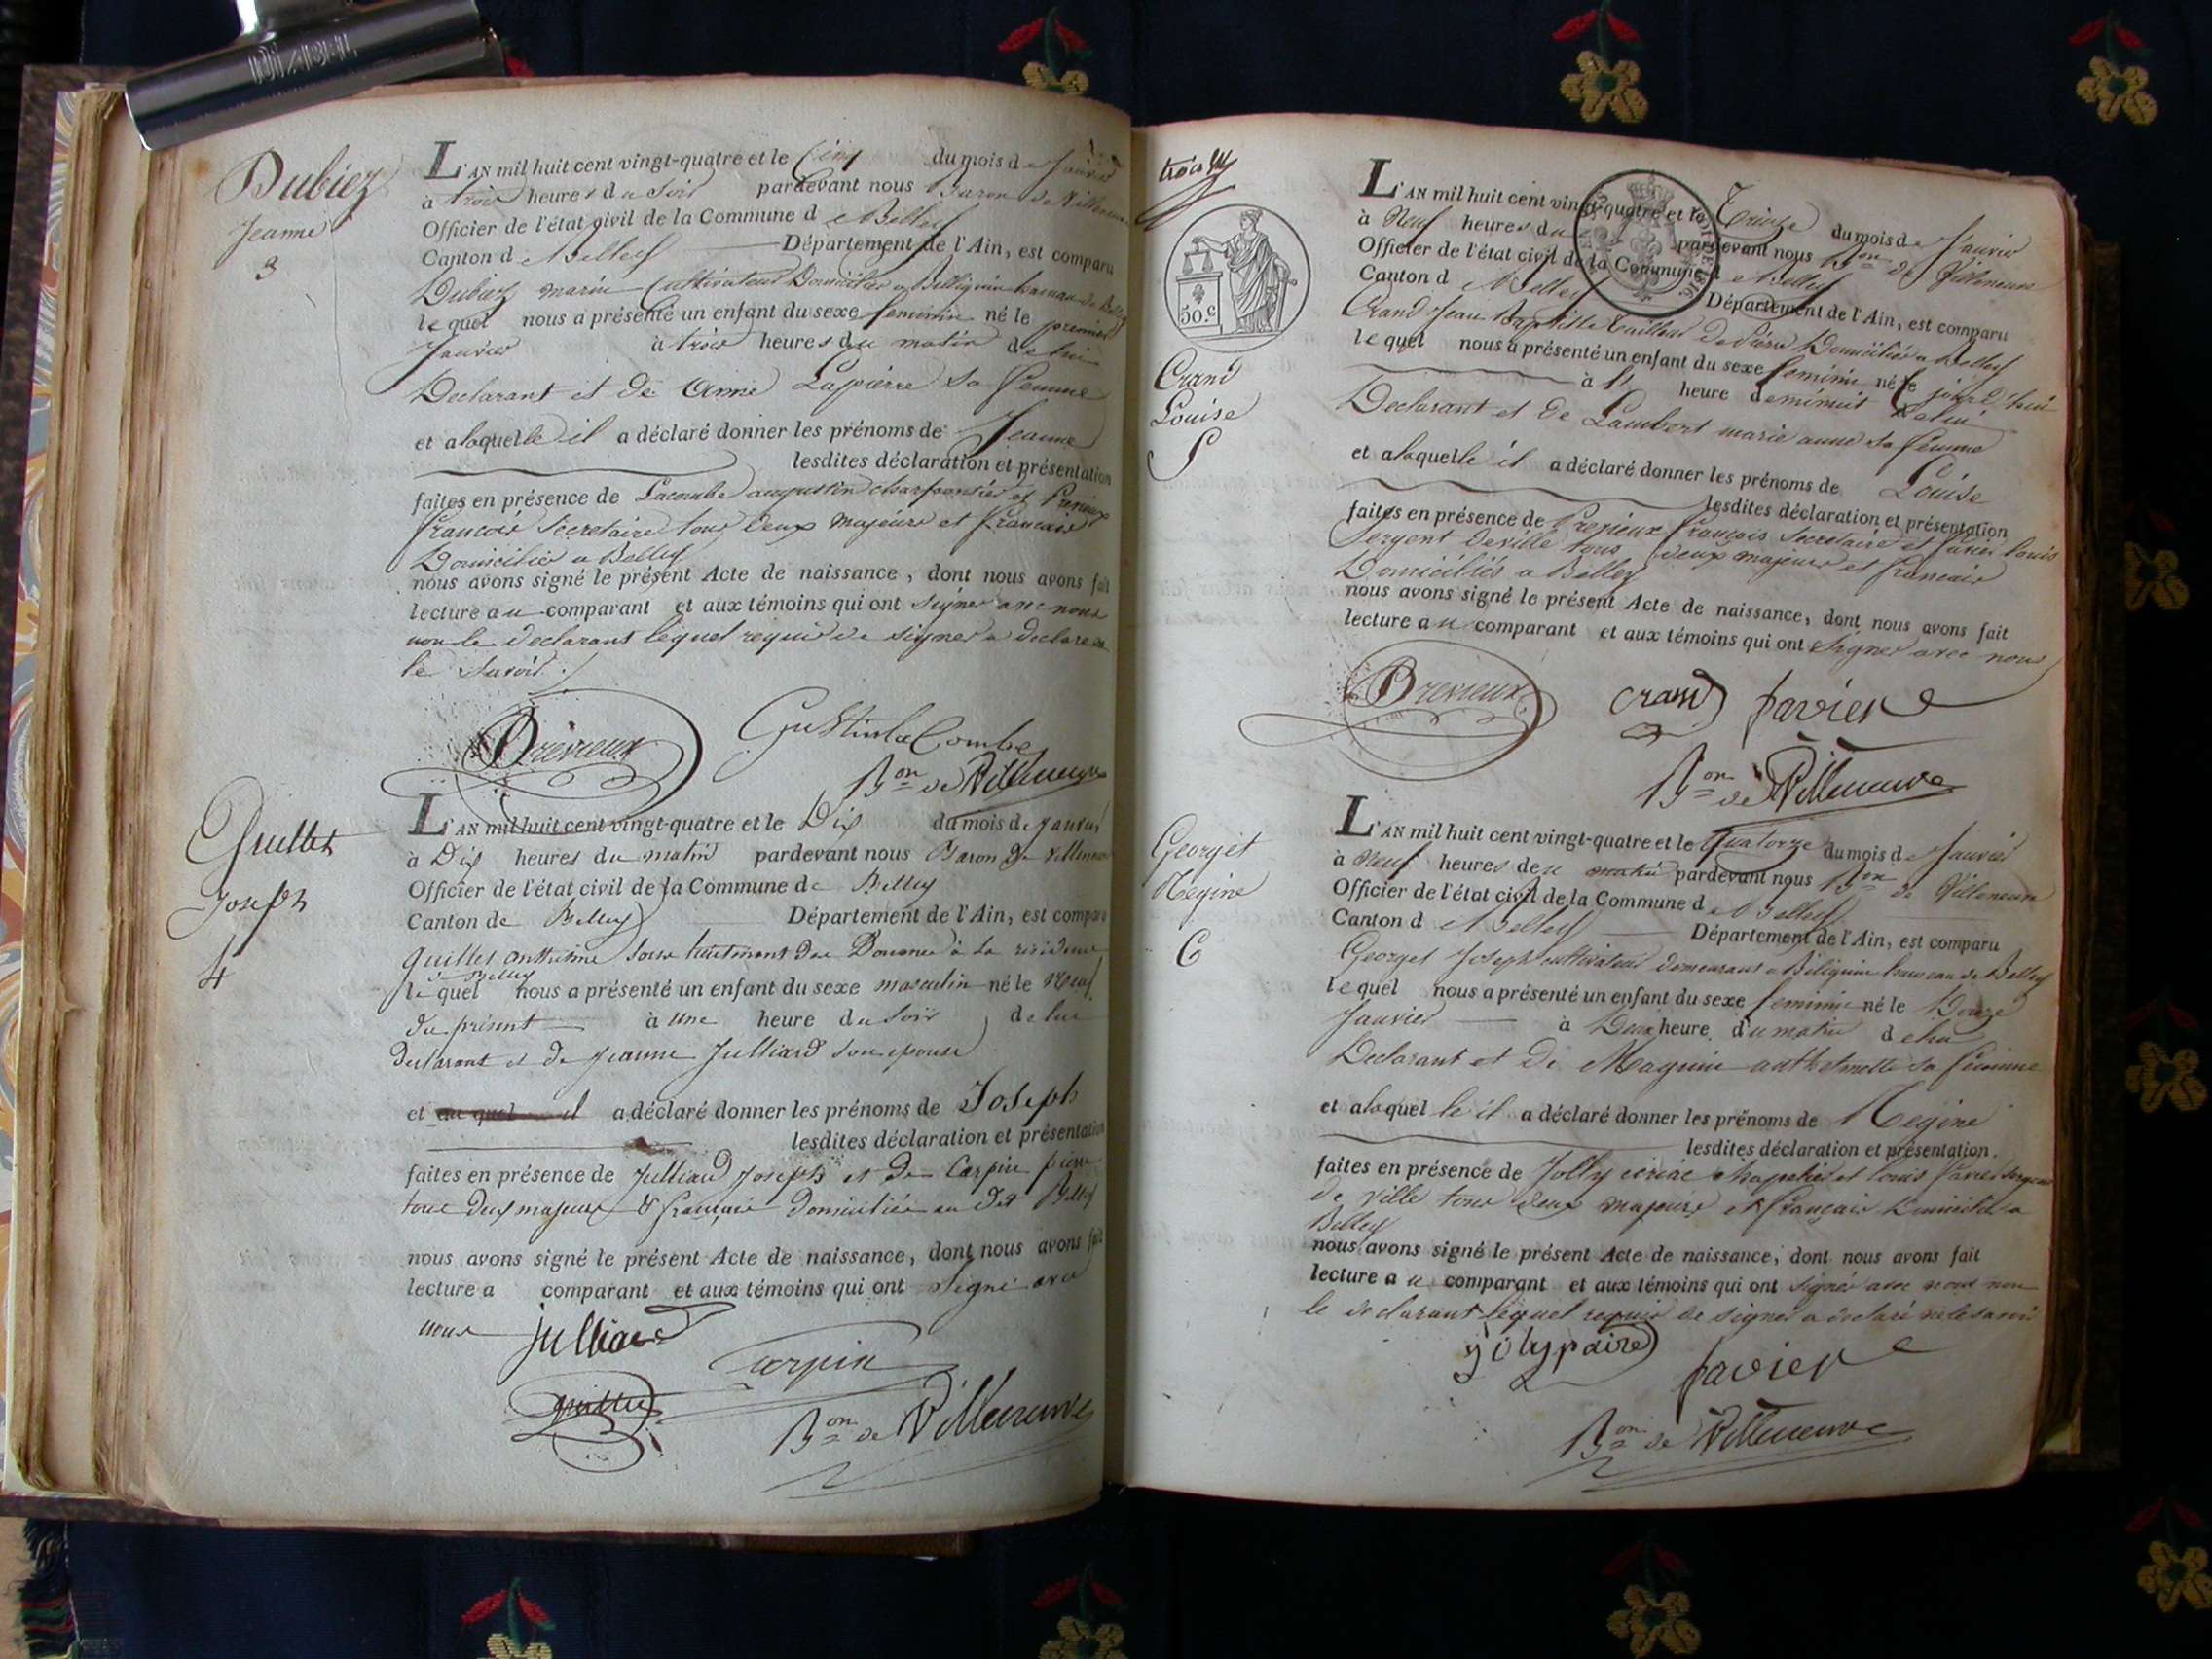 Dubiez
Jeanne
3
L'AN mil huit cent vingt-quatre et le Cinq du mois de Janvier
à trois heures du Soir pardevant nous Baron de Villeneuve
Officier de l'état civil de la Commune de Belley
Canton de Belley Département de l'Ain, est comparu
Dubiez marin Cultivateur Domicilié a Billignin hameau de Belley
lequel nous a présenté un enfant du sexe feminin né le premier
Janvier à trois heures du matin de lui
Declarant et de Anne Lapierre Sa femme
et a laquelle il a déclaré donner les prénoms de Jeanne
lesdites déclaration et présentation
faites en présence de Lacombe augustin charpentier et Prerieux
francois Secretaire tous deux majeurs et francais
Domicilié a Belley
nous avons signé le présent Acte de naissance, dont nous avons fait
lecture au comparant et aux témoins qui ont signer avec nous
non le declarant lequel requis de signer a declare ne
le savoir
Prerieux
Gustin La Combe
Bon de Villeneuve
Guillet
Joseph
4
L'AN mil huit cent vingt-quatre et le Dix du mois de janvier
à Dix heures du matin pardevant nous Baron de Villeneuve
Officier de l'état civil de la Commune de Belley
Canton de Belley Département de l'Ain, est comparu
Guillet anthelme sous lieutenant des Douanes à la résidence
de Belley
lequel nous a présenté un enfant du sexe masculin né le Neuf
du présent à une heure du Soir de lui
declarant et de jeanne Julliard son epouse
et au quel il a déclaré donner les prénoms de Joseph
lesdites déclaration et présentation
faites en présence de Julliard Joseph et de Carpin pierre
tous deux majeurs & français domiciliés au dit Belley
nous avons signé le présent Acte de naissance, dont nous avons fait
lecture a comparant et aux témoins qui ont signé avec
nous
julliard
Carpin
guillet
Bon de Villeneuve
trois
50.c
Crand
Louise
5
L'AN mil huit cent vingt-quatre et le Treize du mois de Janvier
à Neuf heures du pardevant nous Bon de Villeneuve
Officier de l'état civil de la Commune de Belley
Canton de Belley Département de l'Ain, est comparu
Crand Jean Baptiste tailleur de Pierre Domicilié a Belley
lequel nous a présenté un enfant du sexe feminin né le jourd'hui
à heure de minuit de lui
Declarant et de Lambert marie anne sa femme
et a laquelle il a déclaré donner les prénoms de Louise
lesdites déclaration et présentation
faites en présence de Prerieux françois Secretaire et favier louis
Sergent de ville tous deux majeurs et francais
Domiciliés a Belley
nous avons signé le présent Acte de naissance, dont nous avons fait
lecture au comparant et aux témoins qui ont signer avec nous
Prerieux
Crand
favier
Bon de Villeneuve
Georget
Regine
6
L'AN mil huit cent vingt-quatre et le Quatorze du mois de Janvier
à Neuf heures du matin pardevant nous Bon de Villeneuve
Officier de l'état civil de la Commune de Belley
Canton de Belley Département de l'Ain, est comparu
Georget Joseph cultivateur demeurant a Billignin hameau de Belley
lequel nous a présenté un enfant du sexe feminin né le Douze
Janvier à Deux heure du matin de lui
Declarant et de Magnin anthelmette sa femme
et a laquelle il a déclaré donner les prénoms de Regine
lesdites déclaration et présentation.
faites en présence de Jolly chapelier et louis favier sergent
de ville tous deux majeurs et français Domicilié a
Belley
nous avons signé le présent Acte de naissance, dont nous avons fait
lecture au comparant et aux témoins qui ont signés avec nous non
le declarant lequel requis de signer a declaré ne le savoir
favier
Bon de Villeneuve